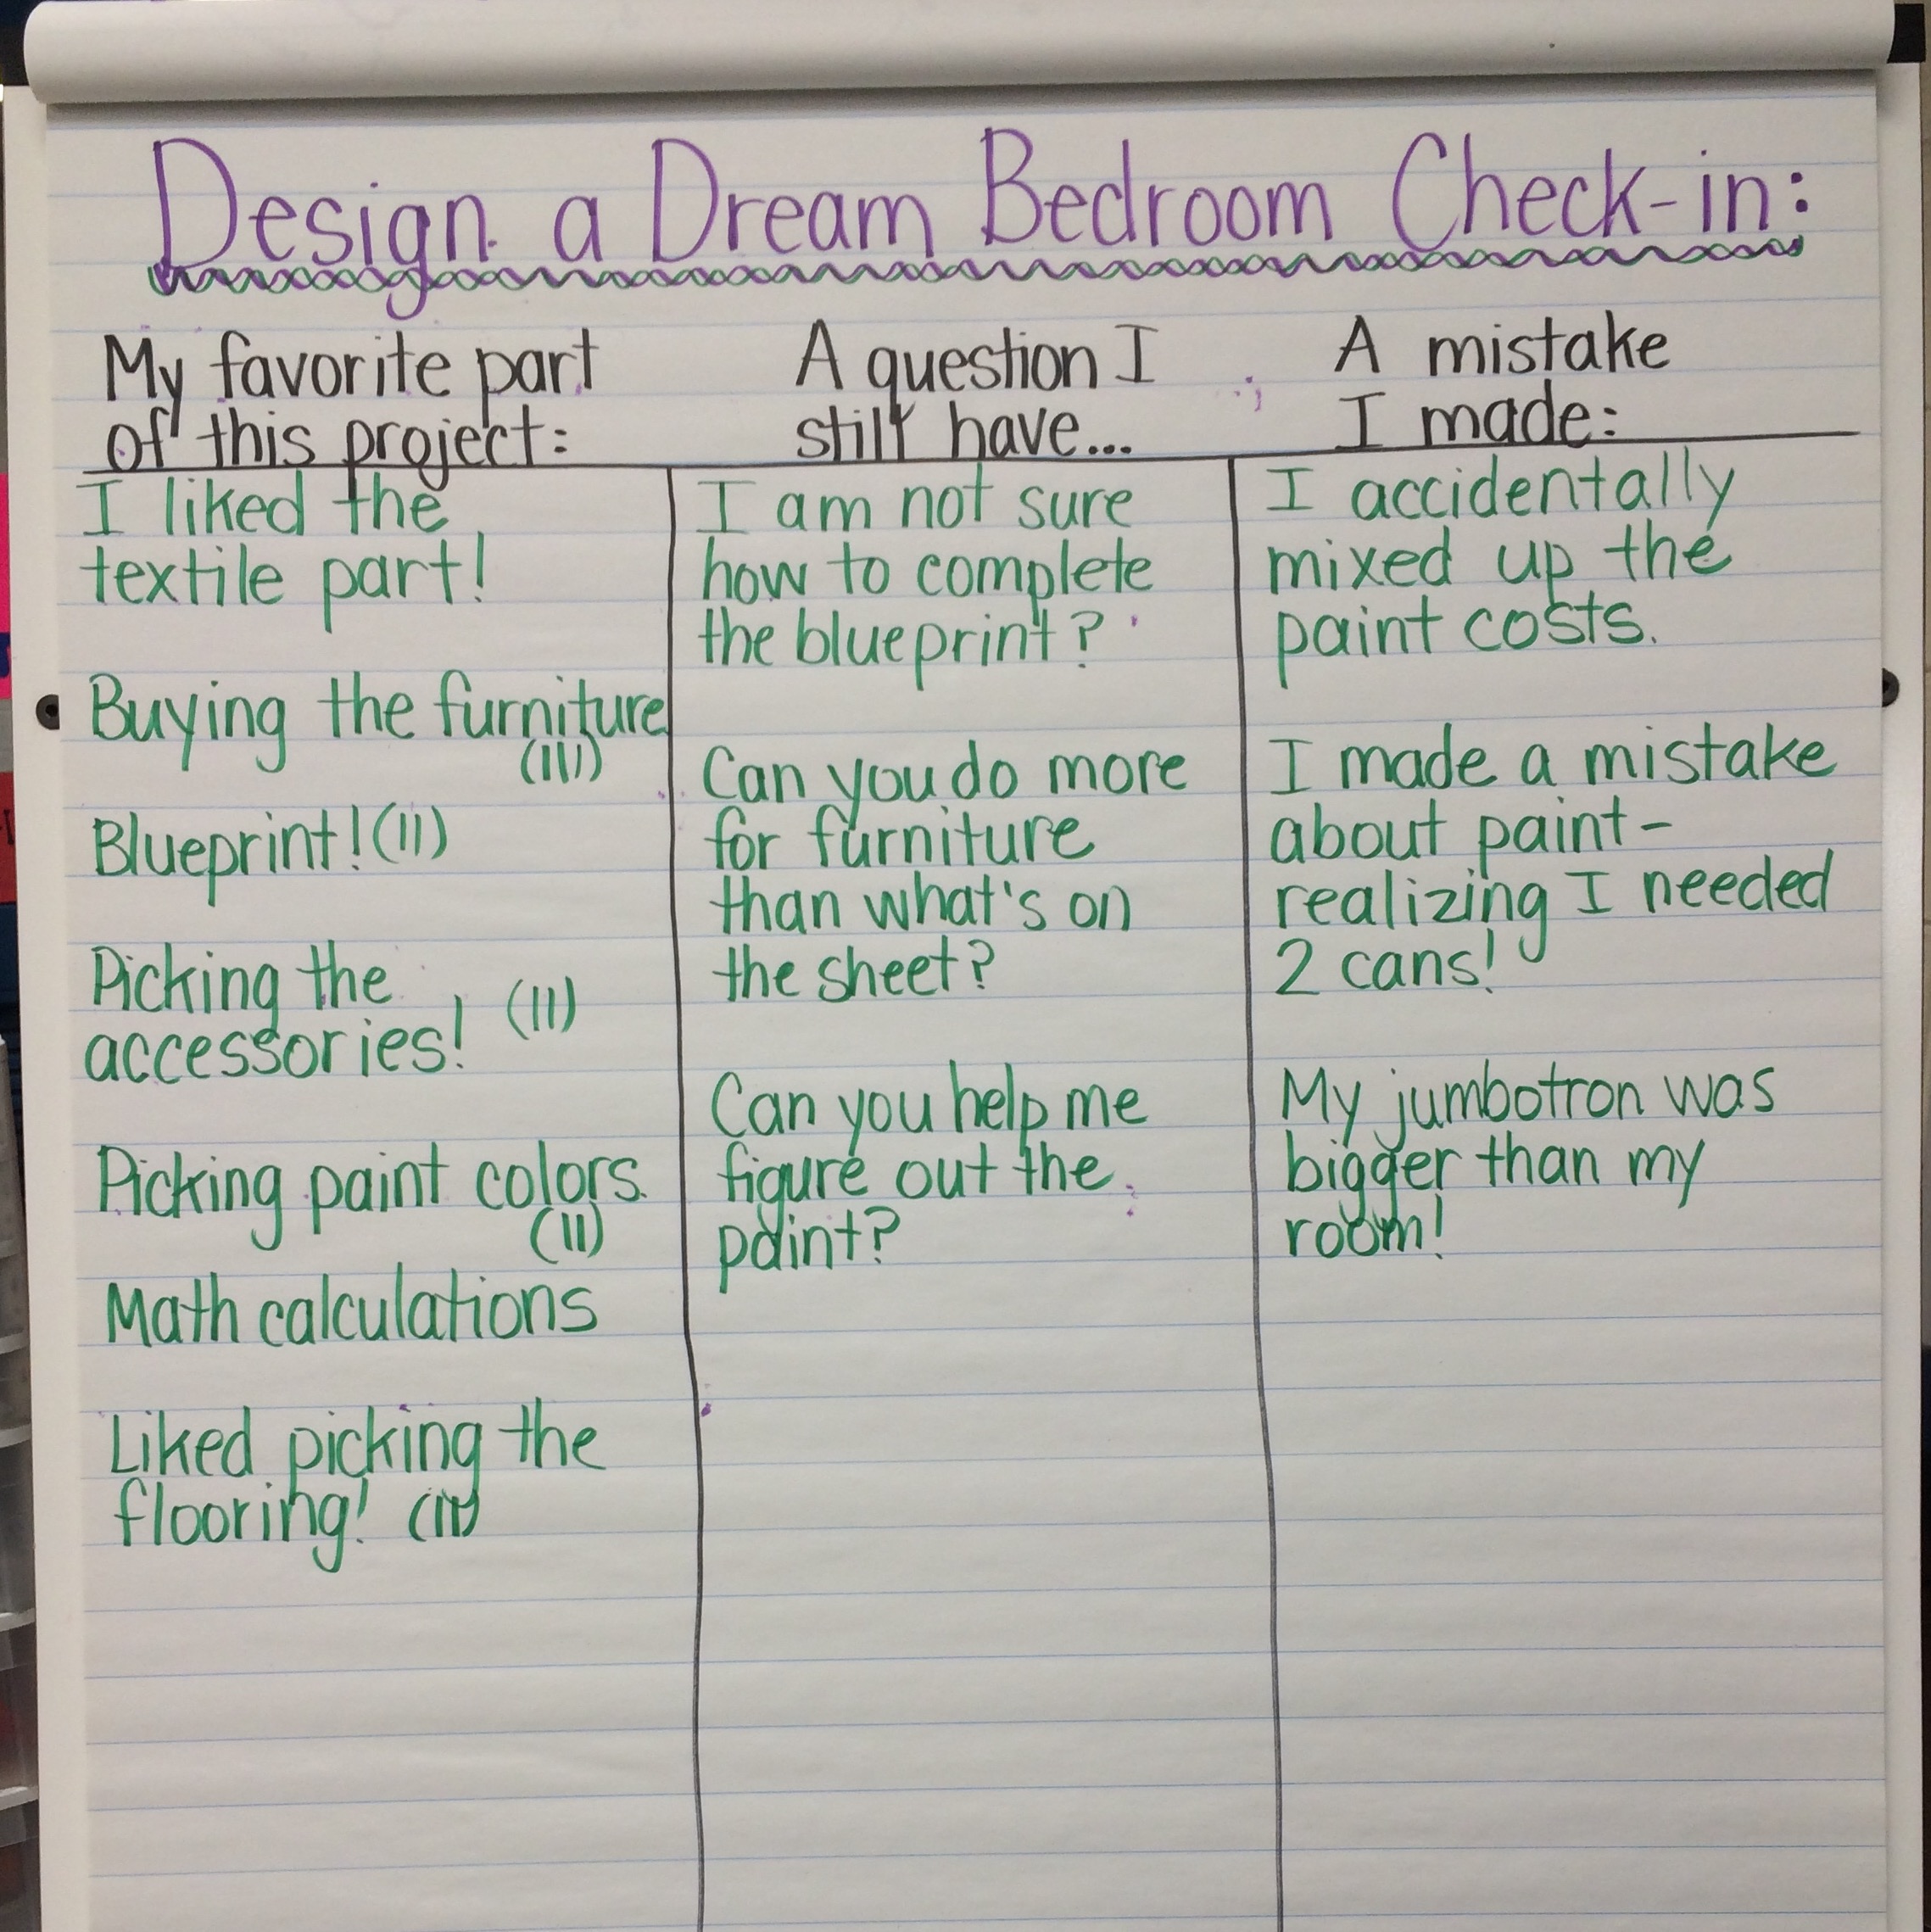 Design a Dream Bedroom Check-in:
My favorite part
of this project:
I liked the
textile part!
Buying the furniture
(III)
Blueprint! (II)
Picking the
accessories! (II)
Picking paint colors.
(II)
Math calculations
Liked picking the
flooring! (II)
A question I
still have...
I am not sure
how to complete
the blueprint?
Can you do more
for furniture
than what's on
the sheet?
Can you help me
figure out the
paint?
A mistake
I made:
I accidentally
mixed up the
paint costs.
I made a mistake
about paint-
realizing I needed
2 cans!
My jumbotron was
bigger than my
room!